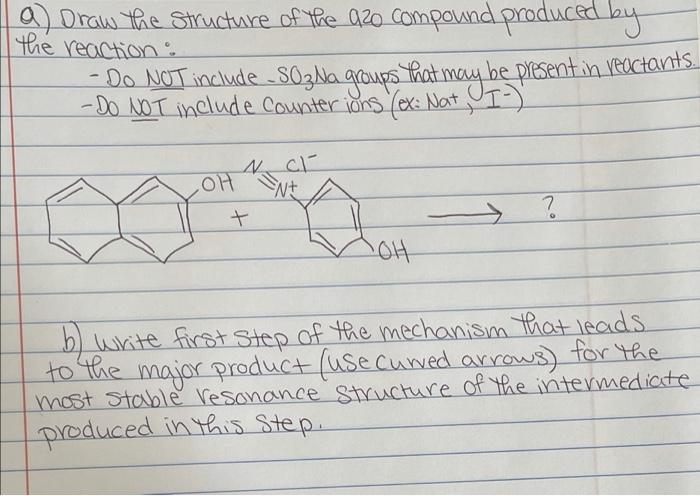 a) Draw the structure of the azo compound produced by
the reaction:
- Do NOT include -SO3Na groups that may be present in reactants.
- Do NOT include counter ions (ex: Na+, I-)
N Cl-
OH N+
+ ?
OH
b) Write first step of the mechanism that leads
to the major product (use curved arrows) for the
most stable resonance structure of the intermediate
produced in this step.